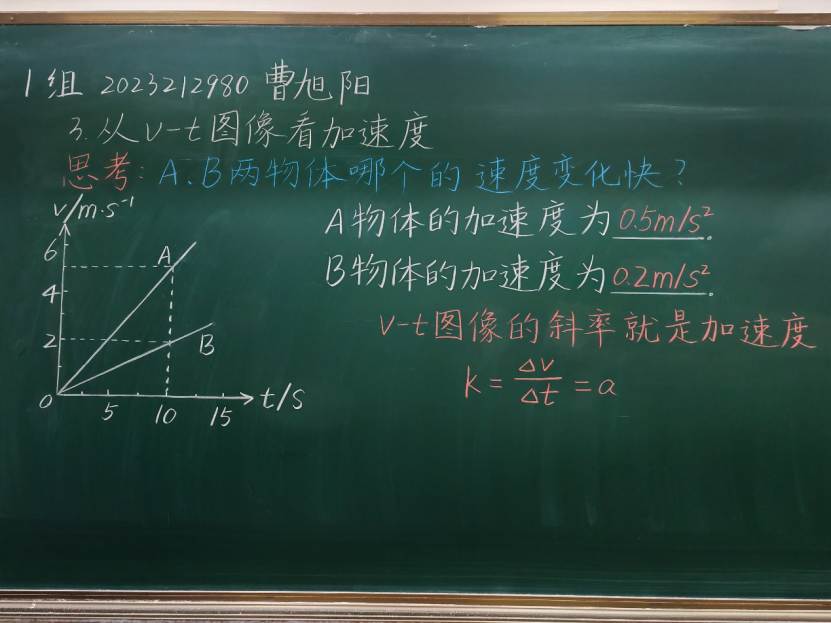 1组 2023212980 曹旭阳
3.从v-t图像看加速度
思考:A、B两物体哪个的速度变化快?
v/m·s⁻¹
6
4
2
0
5
10
15
t/s
A
B
A物体的加速度为0.5m/s²。
B物体的加速度为0.2m/s²。
v-t图像的斜率就是加速度
k=Δv/Δt=a